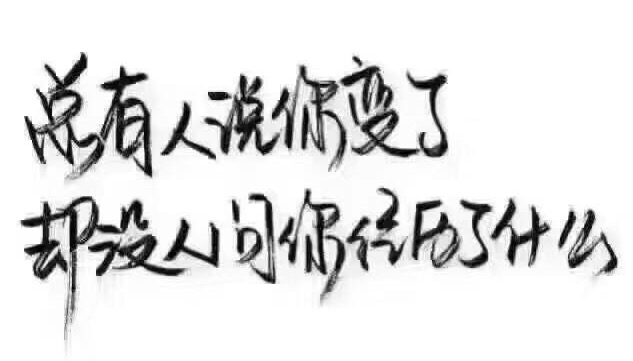 总有人说你变了
却没人问你经历了什么